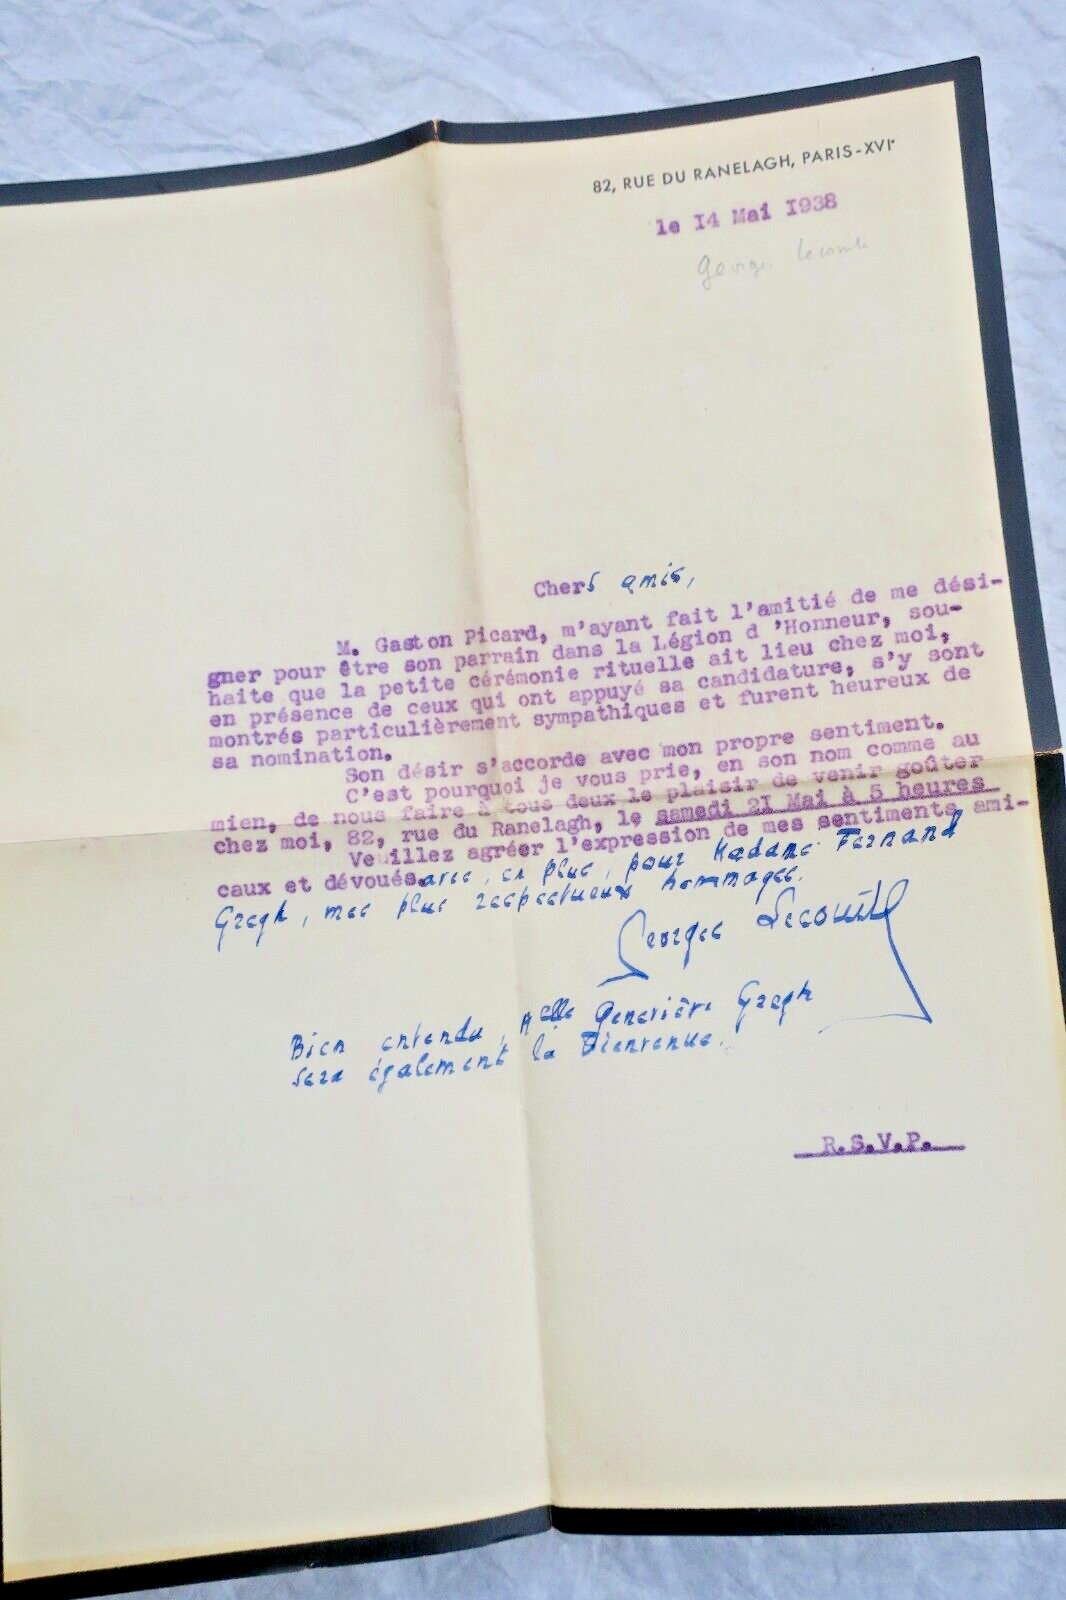 82, RUE DU RANELAGH, PARIS-XVIe
le I4 Mai I938
Georges Lecomte
Chers amis,
M. Gaston Picard, m'ayant fait l'amitié de me dési-
gner pour être son parrain dans la Légion d 'Honneur, sou-
haite que la petite cérémonie rituelle ait lieu chez moi,
en présence de ceux qui ont appuyé sa candidature, s'y sont
montrés particulièrement sympathiques et furent heureux de
sa nomination.
Son désir s'accorde avec mon propre sentiment.
C'est pourquoi je vous prie, en son nom comme au
mien, de nous faire à tous deux le plaisir de venir goûter
chez moi, 82, rue du Ranelagh, le samedi 2I Mai à 5 heures
Veuillez agréer l'expression de mes sentiments ami-
caux et dévoués, avec, en plus, pour Madame Fernand
Gregh, mes plus respectueux hommages.
Georges Lecomte
Bien entendu, Melle Geneviève Gregh
sera également la bienvenue.
R.S.V.P.